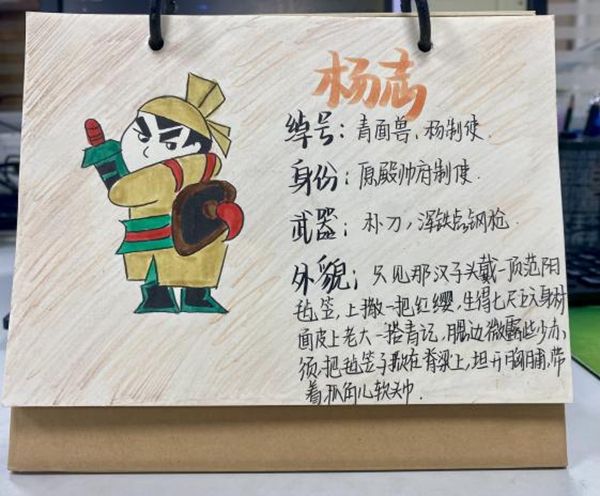 杨志
绰号：青面兽、杨制使.
身份：原殿帅府制使.
武器：朴刀，浑铁点钢枪.
外貌：只见那汉子头戴一顶范阳
毡笠，上撒一把红缨，生得七尺五六身材
面皮上老大一搭青记，腮边微露些少赤
须，把毡笠子掀在脊梁上，坦开胸脯，带
着抓角儿软头巾.